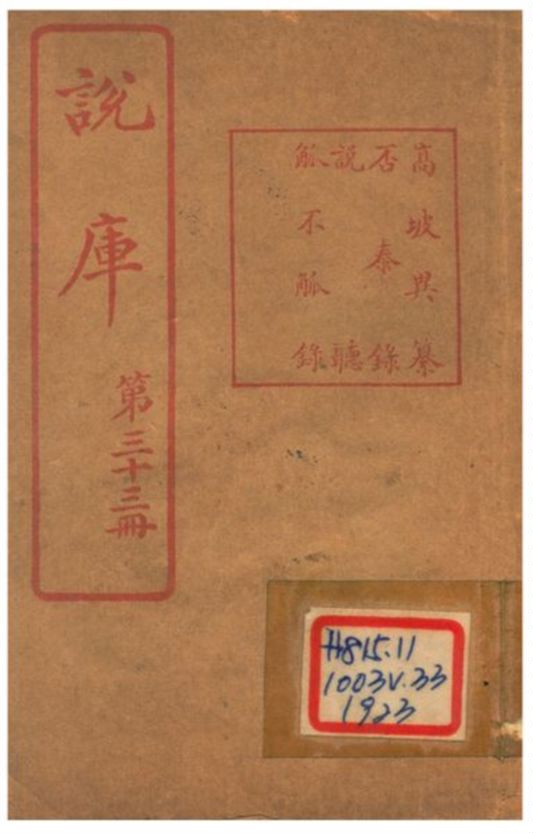 說庫
第三十三冊
高坡異纂
否泰錄
說聽
觚不觚錄
H815.11
1003V.33
1923